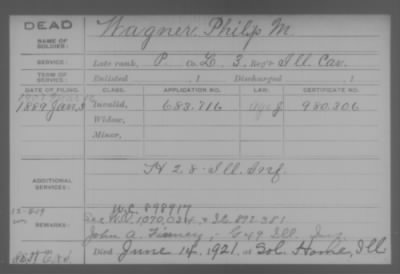 DEAD
NAME OF SOLDIER: Wagner, Philip M.
SERVICE: Late rank, P. Co. L, 3, Reg't Ill. Cav.
TERM OF SERVICE: Enlisted , 1 Discharged , 1
DATE OF FILING. CLASS. APPLICATION NO. LAW. CERTIFICATE NO.
1889 Jan, 3 Invalid, 683.716 980.306
Widow,
Minor,
ADDITIONAL SERVICES: H 28 Ill. Inf.
W.C. 898717
REMARKS: 1070,034 892.381
John A. G 49 Ill. Inf.
Died June 14, 1921, at Sol. Home, Ill